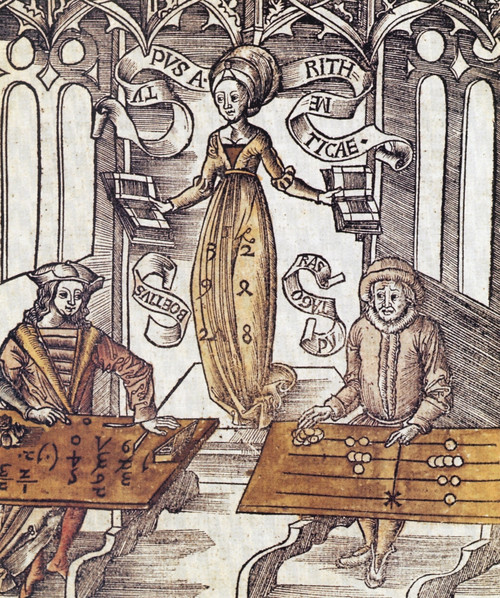 TYPVS ARITH=
METICAE.
BOETIVS
PITAGORAS
3 2
9
2 8